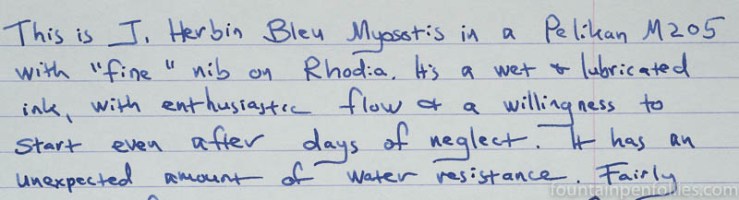 This is J. Herbin Bleu Myosotis in a Pelikan M205
with "fine" nib on Rhodia. It's a wet & lubricated
ink, with enthusiastic flow & a willingness to
start even after days of neglect. It has an
unexpected amount of water resistance. Fairly
fountainpenfollies.com